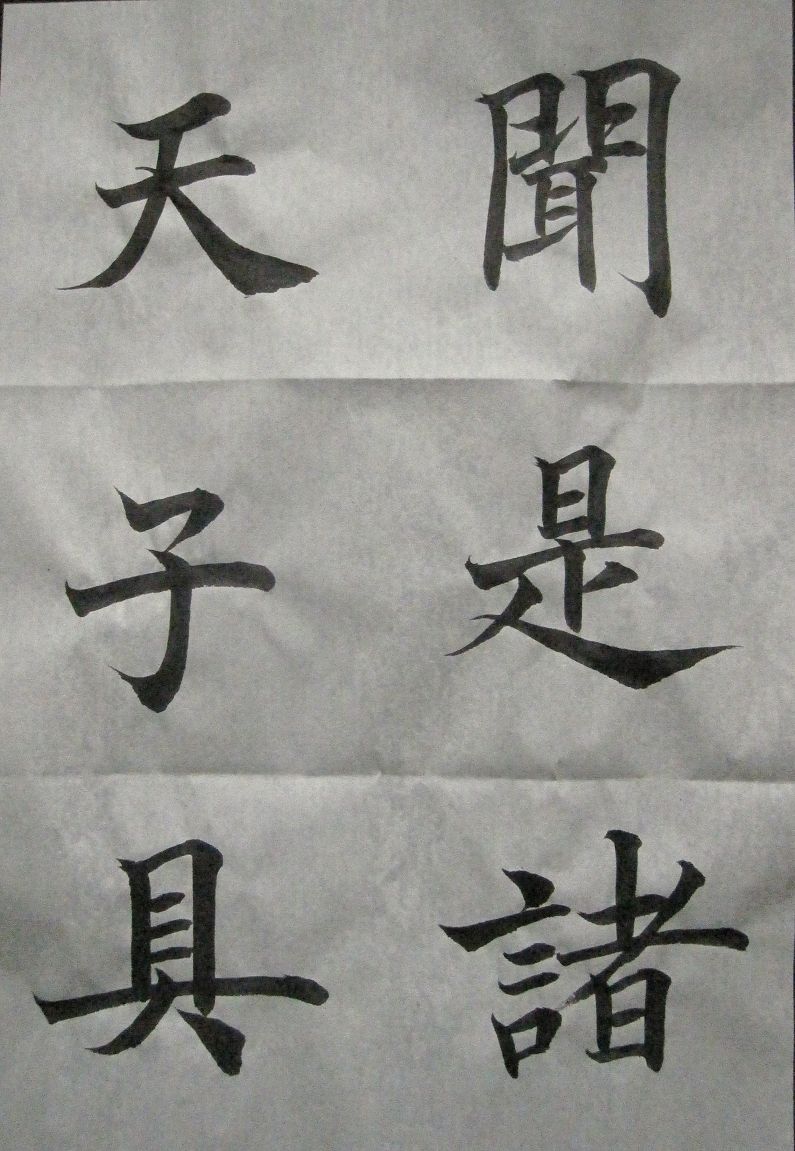 聞是諸
天子具